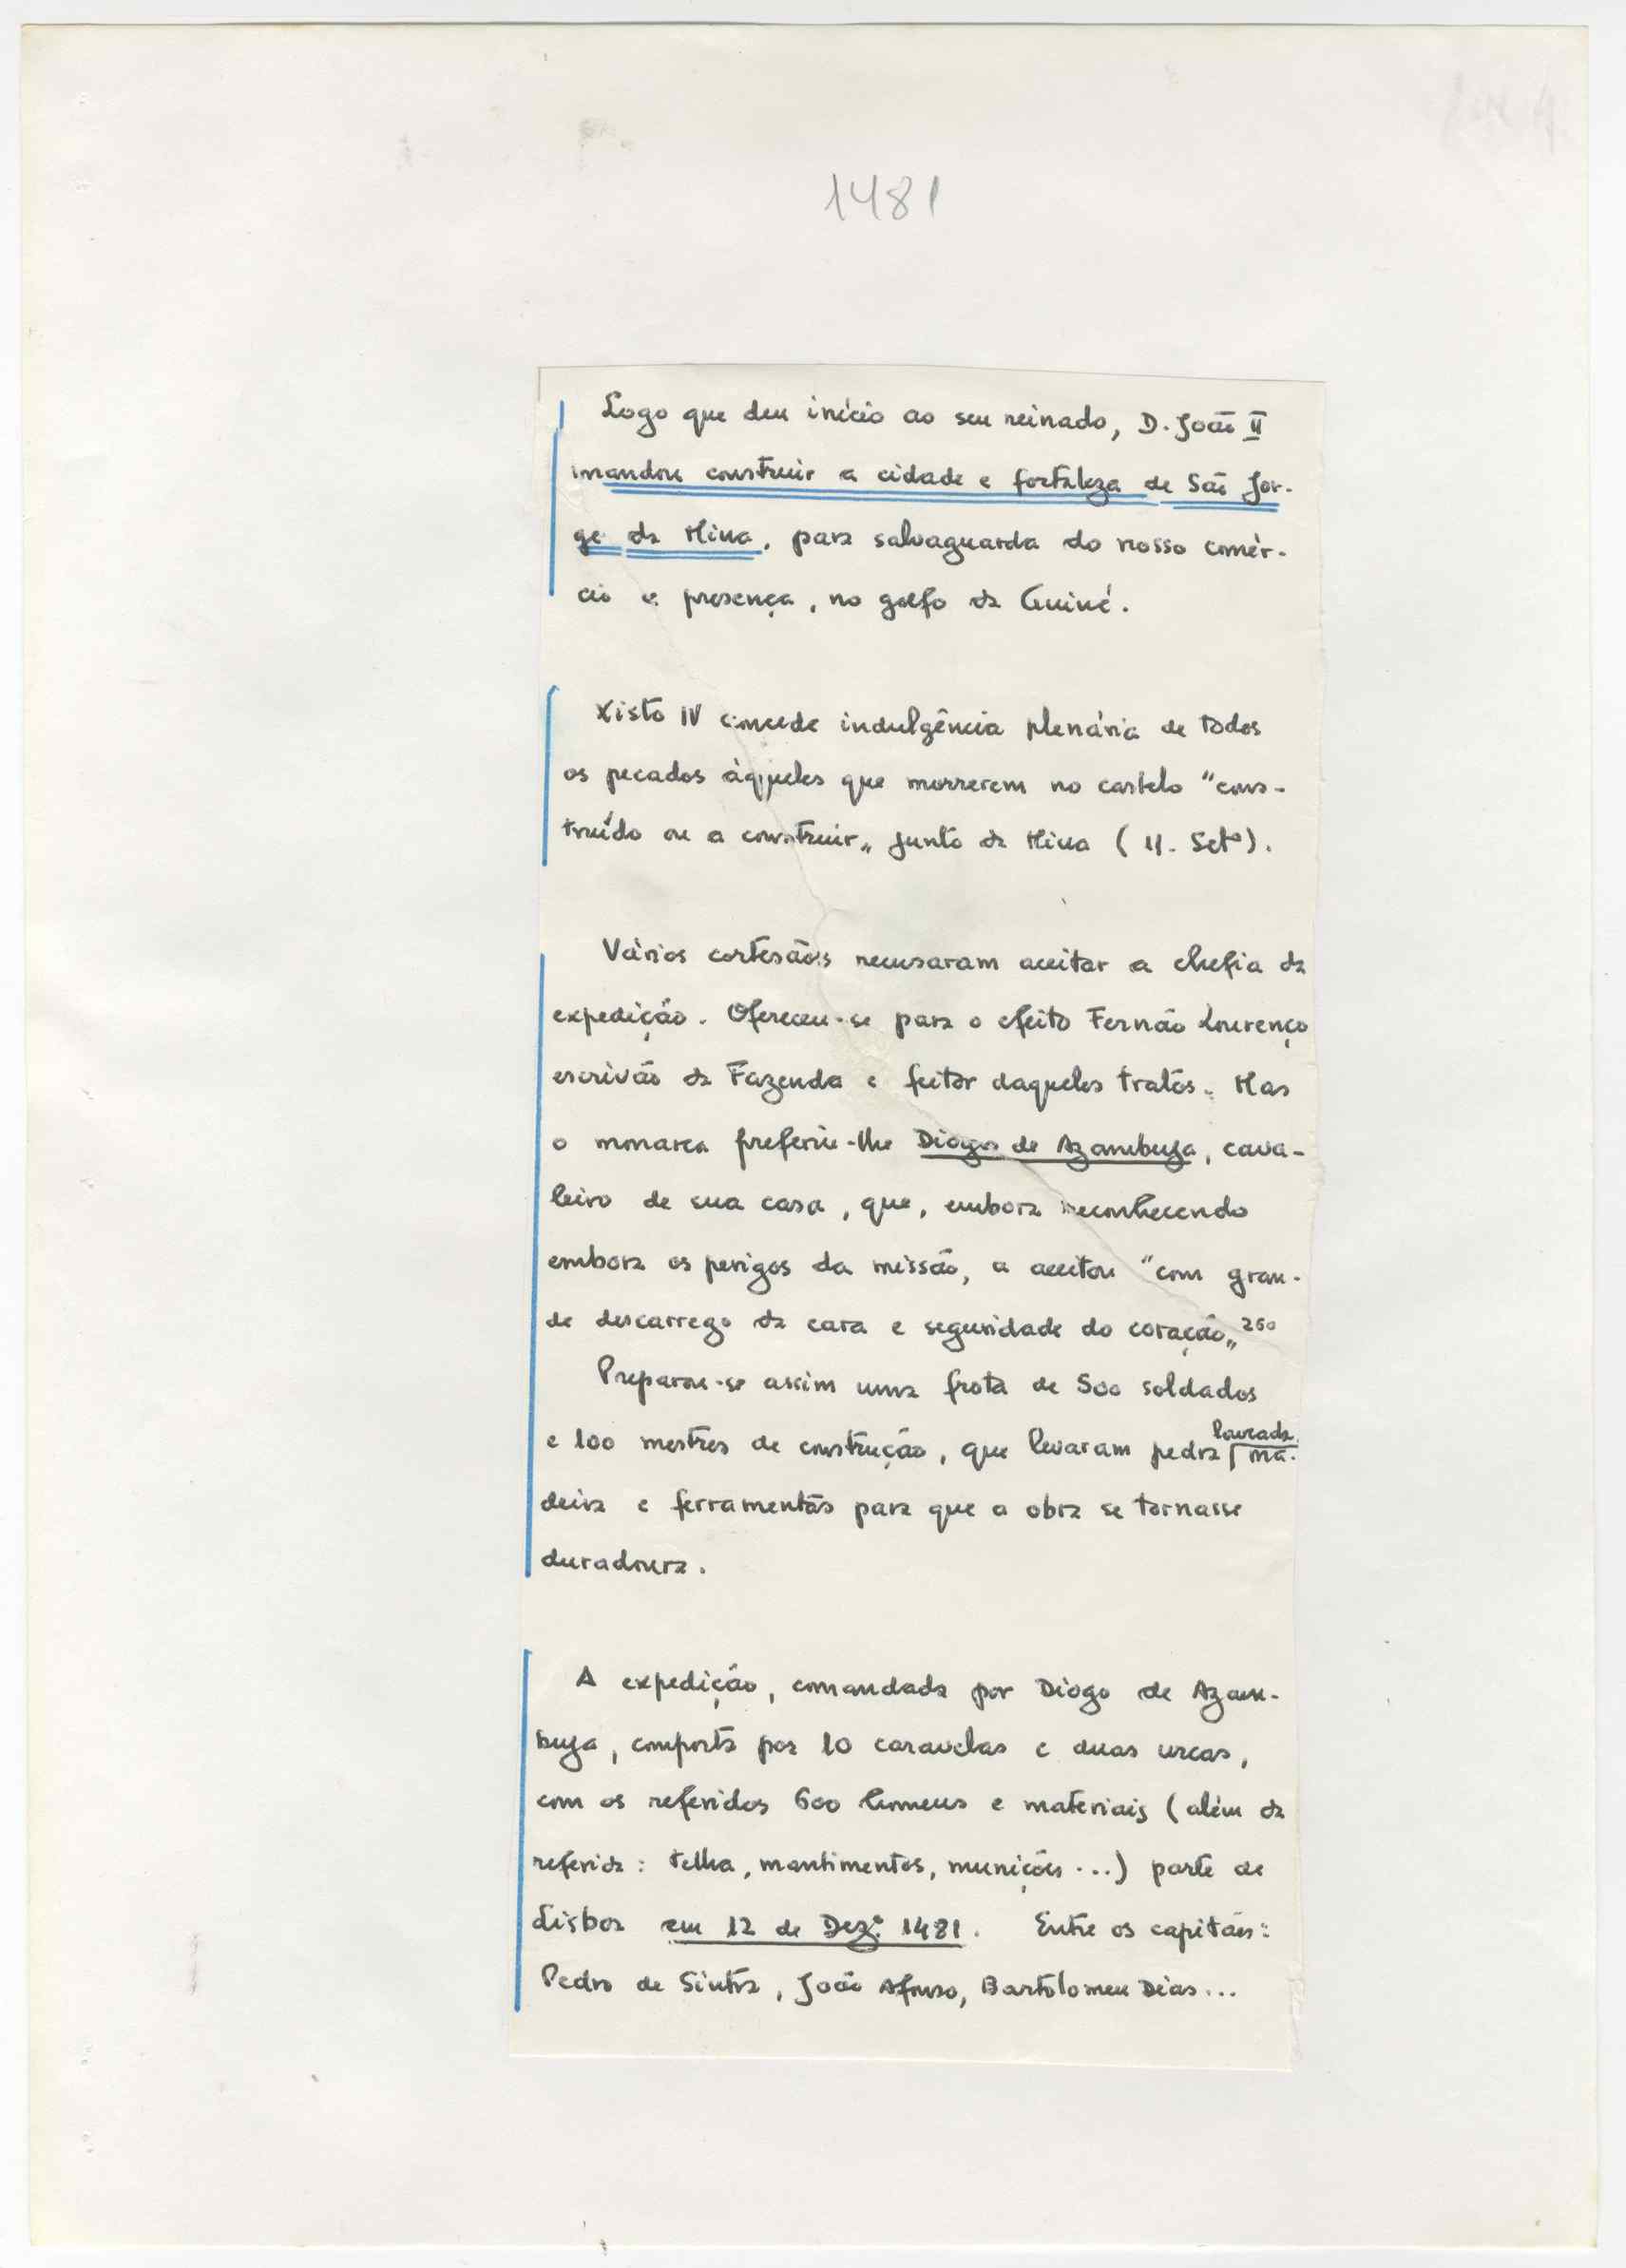 1481
Logo que deu início ao seu reinado, D. João II
mandou construir a cidade e fortaleza de São Jor-
ge da Mina, para salvaguarda do nosso comér-
cio e presença, no golfo da Guiné.
Xisto IV concede indulgência plenária de todos
os pecados àqueles que morrerem no castelo "cons-
truído ou a construir„ junto da Mina (11. Setº).
Vários cortesãos recusaram aceitar a chefia da
expedição. Ofereceu-se para o efeito Fernão Lourenço
escrivão da Fazenda e feitor daqueles tratos. Mas
o monarca preferiu-lhe Diogo de Azambuja, cava-
leiro de sua casa, que, embora reconhecendo
embora os perigos da missão, a aceitou "com gran-
de descarrego da cara e seguridade do coração„ 260
Preparou-se assim uma frota de 500 soldados
e 100 mestres de construção, que levaram pedra lavrada, ma-
deira e ferramentas para que a obra se tornasse
duradoura.
A expedição, comandada por Diogo de Azam-
buja, composta por 10 caravelas e duas urcas,
com os referidos 600 homens e materiais (além da
referida: telha, mantimentos, munições ...) parte de
Lisboa em 12 de Dezº. 1481. Entre os capitães:
Pedro de Sintra, João Afonso, Bartolomeu Dias...